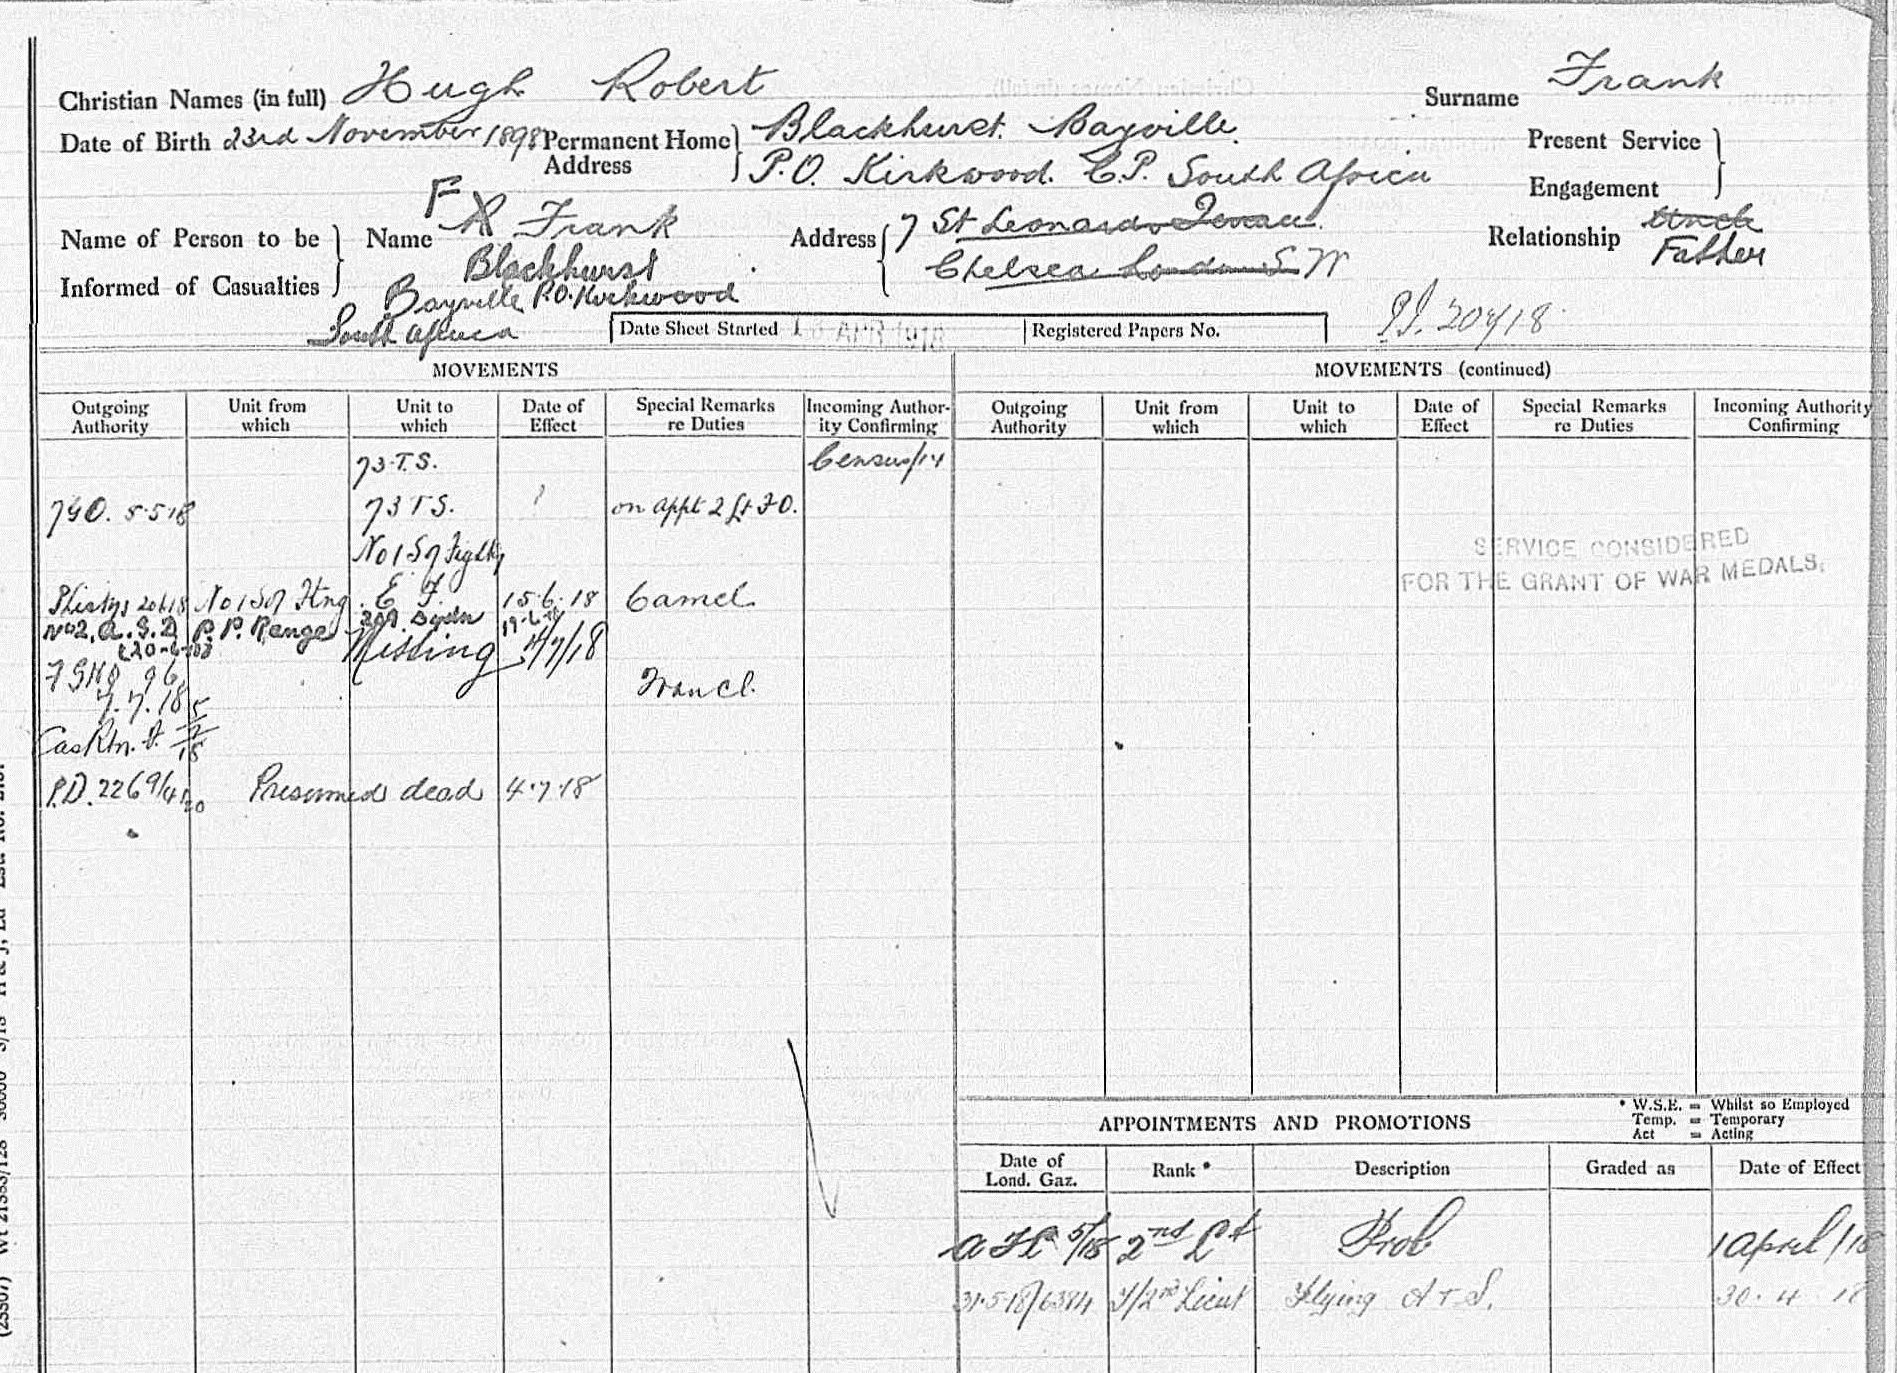 Christian Names (in full) Hugh Robert Surname Frank
Date of Birth 23rd November 1898 Permanent Home Address Blackhurst. Bayville.
P.O. Kirkwood. C.P. South Africa
Present Service Engagement
Name of Person to be Informed of Casualties
Name F Frank
Blackhurst
Bayville P.O. Kirkwood
South Africa
Address 7 St Leonards Terrace.
Chelsea London S W
Relationship Uncle
Father
Date Sheet Started APR 1918 Registered Papers No.
MOVEMENTS
Outgoing Authority Unit from which Unit to which Date of Effect Special Remarks re Duties Incoming Authority Confirming
73 T.S. Census/14
5.5.18 73 T S. ? on appt 2 Lt
No 1 S of Fightg
No 1 S of Ftng E F. 15.6.18 Camel
No 2. A. S. D P. P. Range 209 Sqdn 19-6-18
(20-6-18) Missing 4/7/18
96 France.
7.7.18
P.D. 2269/4 Presumed dead 4.7.18
MOVEMENTS (continued)
Outgoing Authority Unit from which Unit to which Date of Effect Special Remarks re Duties Incoming Authority Confirming
SERVICE CONSIDERED
FOR THE GRANT OF WAR MEDALS.
APPOINTMENTS AND PROMOTIONS
* W.S.E. = Whilst so Employed
Temp. = Temporary
Act = Acting
Date of Lond. Gaz. Rank * Description Graded as Date of Effect
5/18 2nd Lt Prob 1 April/18
31.5.18/6384 T/2nd Lieut Flying 30.4.18